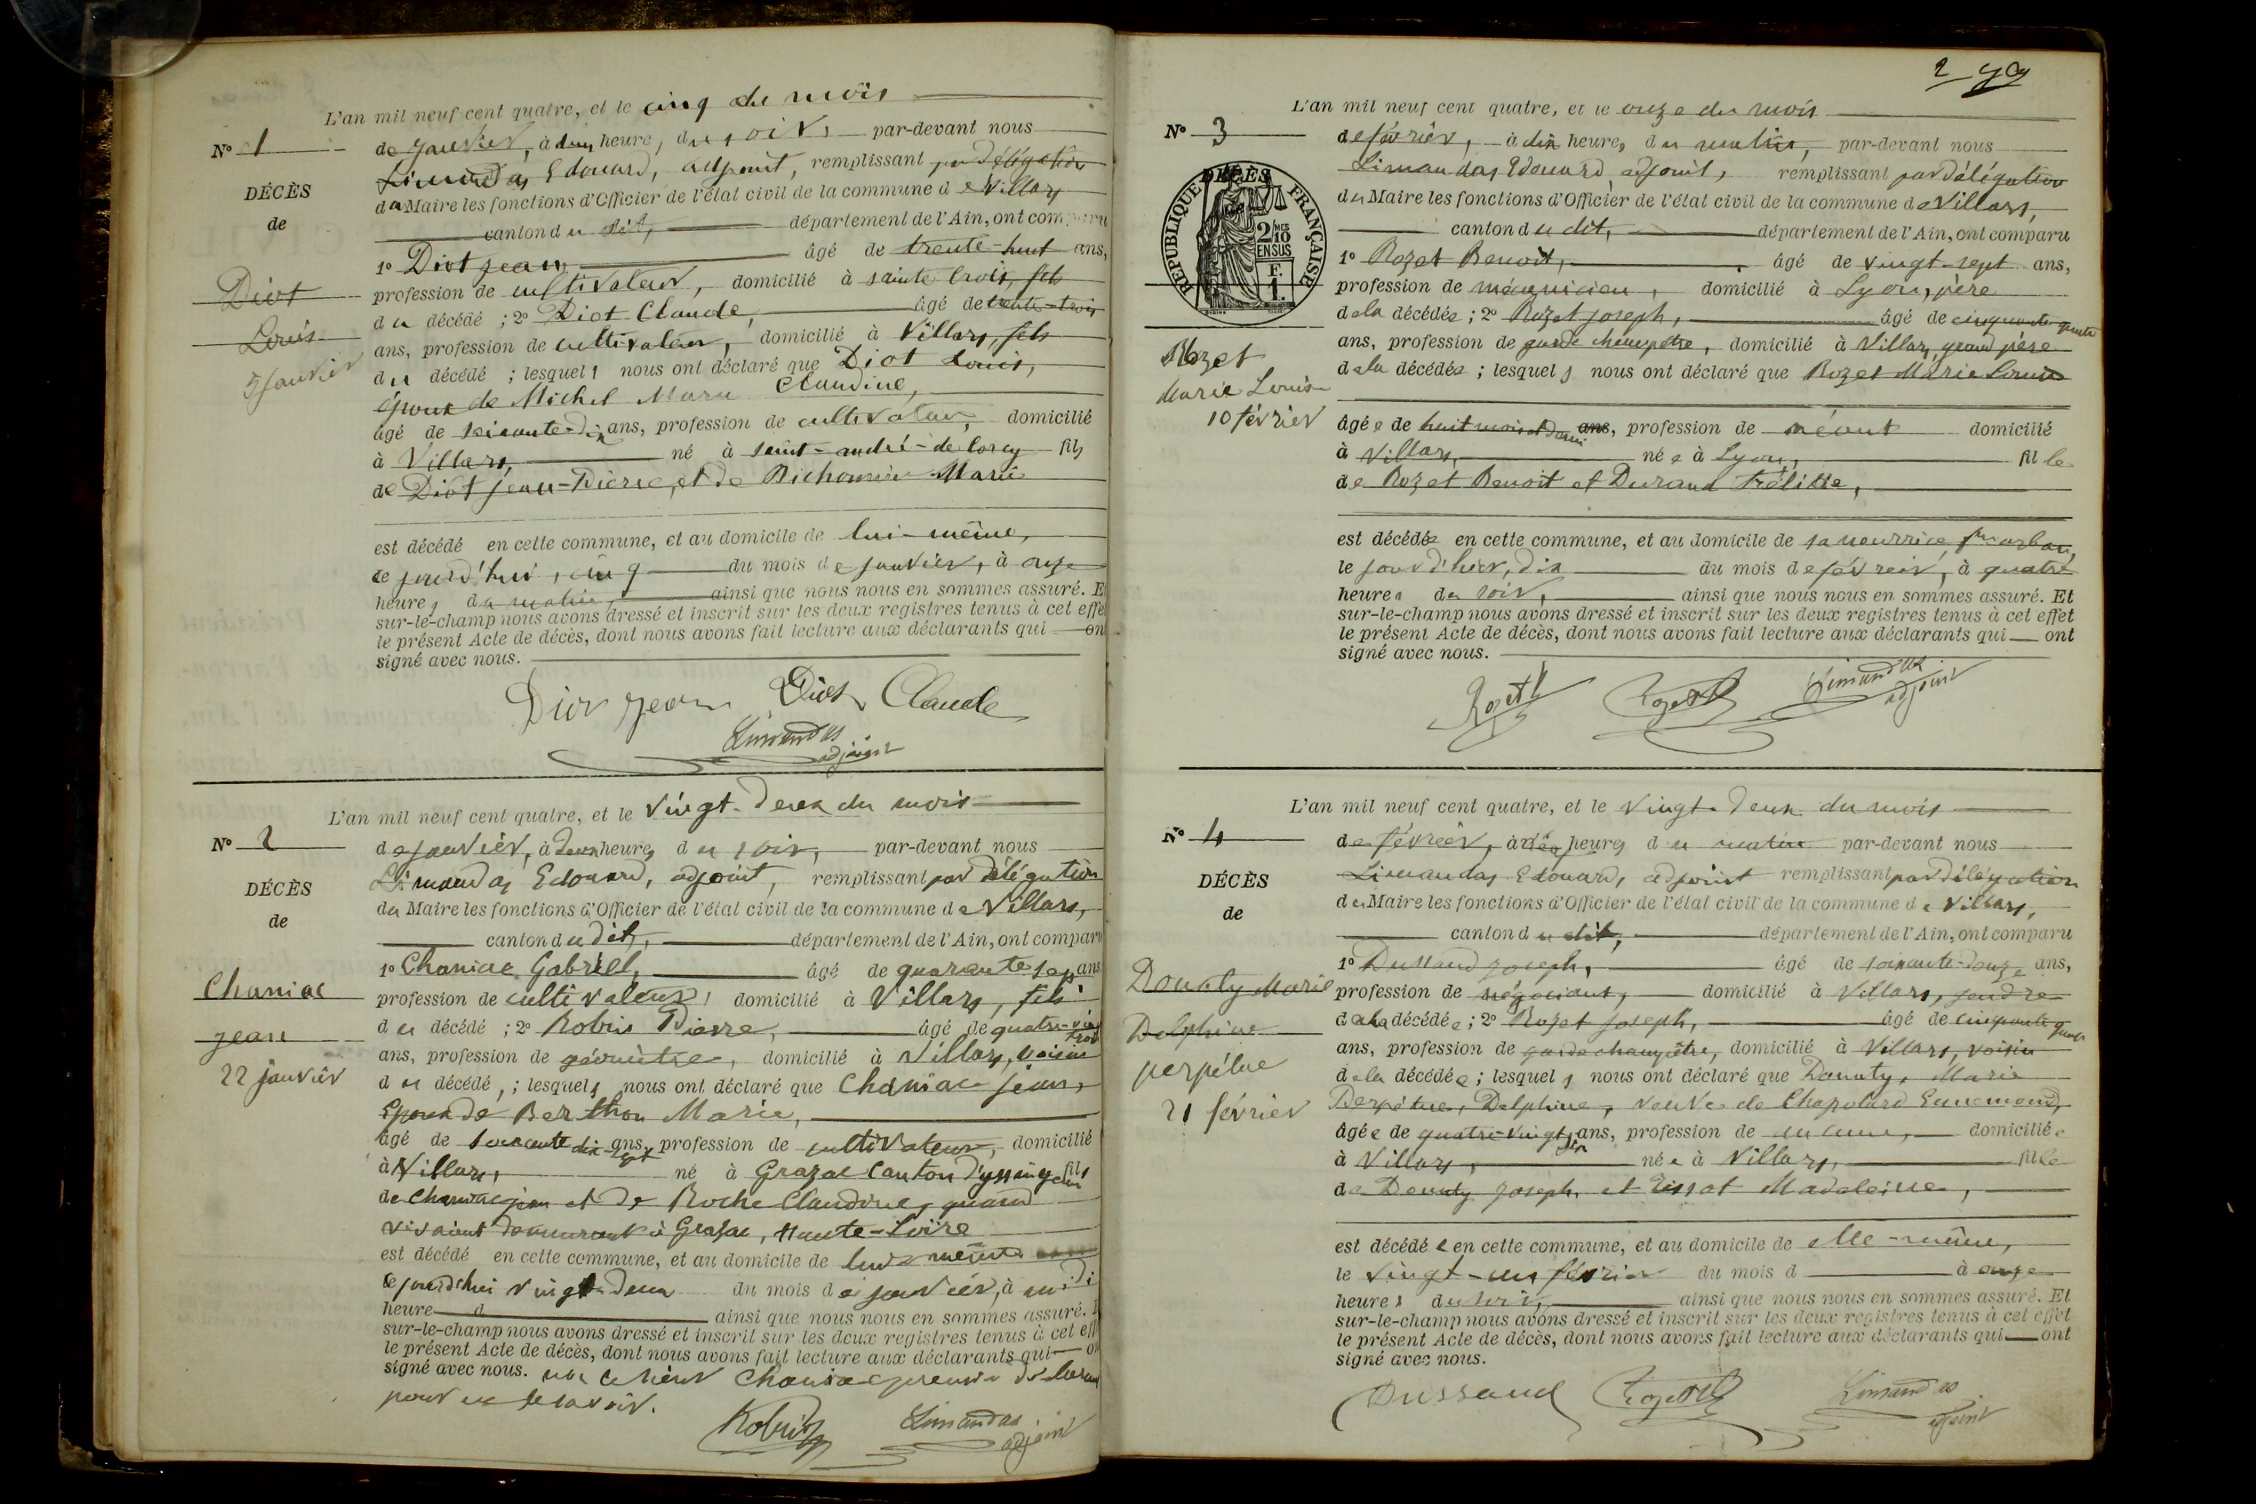 L'an mil neuf cent quatre, et le cinq du mois
N° 1
de janvier, à heures, du soir, par-devant nous
Limandas Edouard, adjoint, remplissant par délégation
DÉCÈS
du Maire les fonctions d'Officier de l'état civil de la commune de Villars
de
canton du dit, département de l'Ain, ont comparu
1° Diot Jean, âgé de trente-huit ans,
Diot
profession de cultivateur, domicilié à sainte Croix, fils
du décédé ; 2° Diot Claude, âgé de trente-trois
Louis
ans, profession de cultivateur, domicilié à Villars, fils
5 janvier
du décédé ; lesquels nous ont déclaré que Diot Louis,
époux de Michel Marie Claudine,
âgé de soixante-dix ans, profession de cultivateur, domicilié
à Villars, né à saint-andré-de Corcy fils
de Diot Jean-Pierre, et de Marie
est décédé en cette commune, et au domicile de lui-même,
ce jourd'hui, cinq du mois de janvier, à onze
heures du matin, ainsi que nous nous en sommes assuré. Et
sur-le-champ nous avons dressé et inscrit sur les deux registres tenus à cet effe
le présent Acte de décès, dont nous avons fait lecture aux déclarants qui on
signé avec nous.
Diot Jean Diot Claude
Limandas
adjoint
L'an mil neuf cent quatre, et le vingt-deux du mois
N° 2
de janvier, à deux heures du soir, par-devant nous
Limandas Edouard, adjoint, remplissant par délégation
DÉCÈS
du Maire les fonctions d'Officier de l'état civil de la commune de Villars,
de
canton du dit, département de l'Ain, ont comparu
1° Chaniac Gabriel, âgé de quarante sept ans
Chaniac
profession de cultivateur, domicilié à Villars, fils
du décédé ; 2° Robin Pierre, âgé de quatre-vingt trois
jean
ans, profession de géomètre, domicilié à Villars, voisin
22 janvier
du décédé, ; lesquels nous ont déclaré que Chaniac Jean,
époux de Berthon Marie,
âgé de soixante dix-sept ans, profession de cultivateur, domicilié
à Villars, né à Grazac canton d'yssingeaux fils
de Chaniac jean et de Roche Claudine, quand
vivaient demeurant à Grazac, Haute-Loire
est décédé en cette commune, et au domicile de lui-même
ce jourd'hui vingt-deux du mois de janvier, à midi
heure d ainsi que nous nous en sommes assuré.
sur-le-champ nous avons dressé et inscrit sur les deux registres tenus à cet eff
le présent Acte de décès, dont nous avons fait lecture aux déclarants qui
signé avec nous. non le sieur Chaniac premier déclarant
pour ne le savoir.
Robin Limandas
adjoint
2
L'an mil neuf cent quatre, et le onze du mois
N° 3
de février, à dix heures du matin, par-devant nous
Limandas Edouard, adjoint, remplissant par délégation
DÉCÈS
RÉPUBLIQUE FRANÇAISE
2/10 MES
EN SUS
F.
1.
du Maire les fonctions d'Officier de l'état civil de la commune de Villars,
canton du dit, département de l'Ain, ont comparu
1° Rozet Benoit, âgé de vingt-sept ans,
profession de mécanicien, domicilié à Lyon, père
de la décédée ; 2° Rozet Joseph, âgé de cinquante quatre
ans, profession de garde champêtre, domicilié à Villars, grand père
Rozet
de la décédée ; lesquels nous ont déclaré que Rozet Marie Louise
Marie Louise
10 février
âgée de huit mois et demi ans, profession de néant domicilié
à Villars, née à Lyon, fille
de Rozet Benoit et Durand
est décédée en cette commune, et au domicile de sa nourrice
le jour d'hier, dix du mois de février, à quatre
heures du soir, ainsi que nous nous en sommes assuré. Et
sur-le-champ nous avons dressé et inscrit sur les deux registres tenus à cet effet
le présent Acte de décès, dont nous avons fait lecture aux déclarants qui ont
signé avec nous.
Rozet Rozet Limandas
adjoint
L'an mil neuf cent quatre, et le vingt-deux du mois
N° 4
de février, à heures du matin par-devant nous
Limandas Edouard, adjoint remplissant par délégation
DÉCÈS
du Maire les fonctions d'Officier de l'état civil de la commune de Villars,
de
canton du dit, département de l'Ain, ont comparu
1° Dussaud Joseph, âgé de soixante-douze ans,
Marie
profession de négociant, domicilié à Villars, gendre
de la décédée ; 2° Rozet Joseph, âgé de cinquante quatre
Delphine
ans, profession de garde champêtre, domicilié à Villars, voisin
perpétue
de la décédée ; lesquels nous ont déclaré que Marie
21 février
Perpétue, Delphine, veuve de Chapolard Ennemond,
âgée de quatre-vingt ans, profession de aucune, domiciliée
à Villars, née à Villars, fille
de Joseph, et Madeleine,
est décédée en cette commune, et au domicile de elle-même,
le vingt-un février du mois d à onze
heures du soir, ainsi que nous nous en sommes assuré. Et
sur-le-champ nous avons dressé et inscrit sur les deux registres tenus à cet effet
le présent Acte de décès, dont nous avons fait lecture aux déclarants qui ont
signé avec nous.
Dussaud Rozet Limandas
adjoint